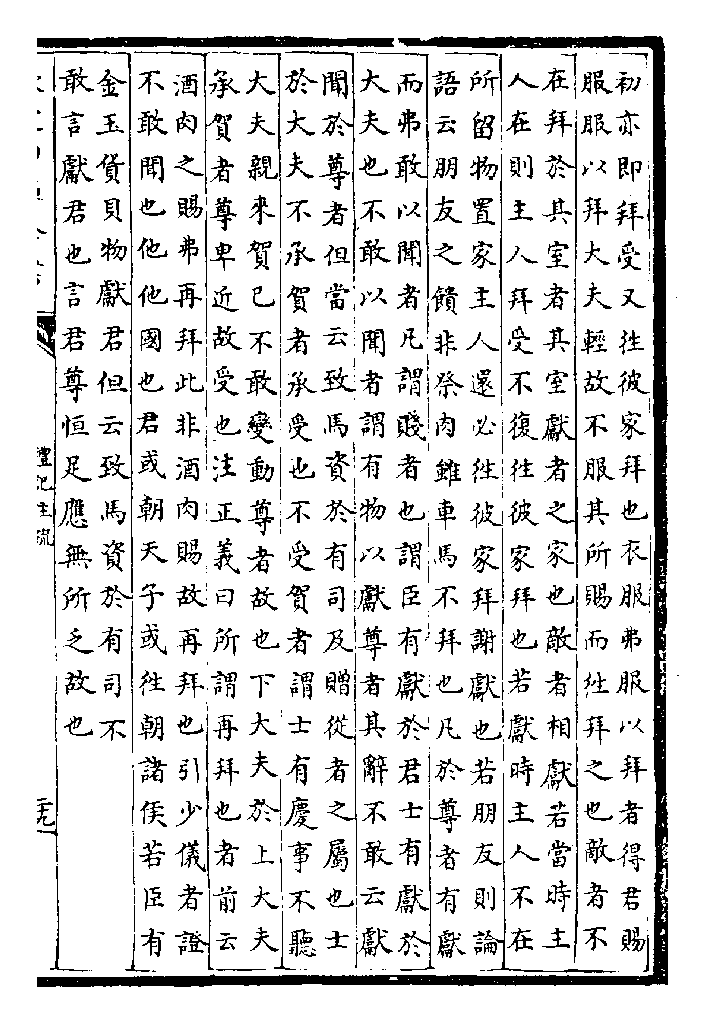 初亦即拜受又往彼家拜也衣服弗服以拜者得君賜
服服以拜大夫輕故不服其所賜而往拜之也敵者不
在拜於其室者其室獻者之家也敵者相獻若當時主
人在則主人拜受不復往彼家拜也若獻時主人不在
所留物置家主人還必往彼家拜謝獻也若朋友則論
語云朋友之饋非祭肉雖車馬不拜也凡於尊者有獻
而弗敢以聞者凡謂賤者也謂臣有獻於君士有獻於
大夫也不敢以聞者謂有物以獻尊者其辭不敢云獻
聞於尊者但當云致馬資於有司及贈從者之屬也士
於大夫不承賀者承受也不受賀者謂士有慶事不聽
大夫親來賀己不敢變動尊者故也下大夫於上大夫
承賀者尊卑近故受也注正義曰所謂再拜也者前云
酒肉之賜弗再拜此非酒肉賜故再拜也引少儀者證
不敢聞也他他國也君或朝天子或往朝諸侯若臣有
金玉貨貝物獻君但云致馬資於有司不
敢言獻君也言君尊恒足應無所乏故也
禮記注疏